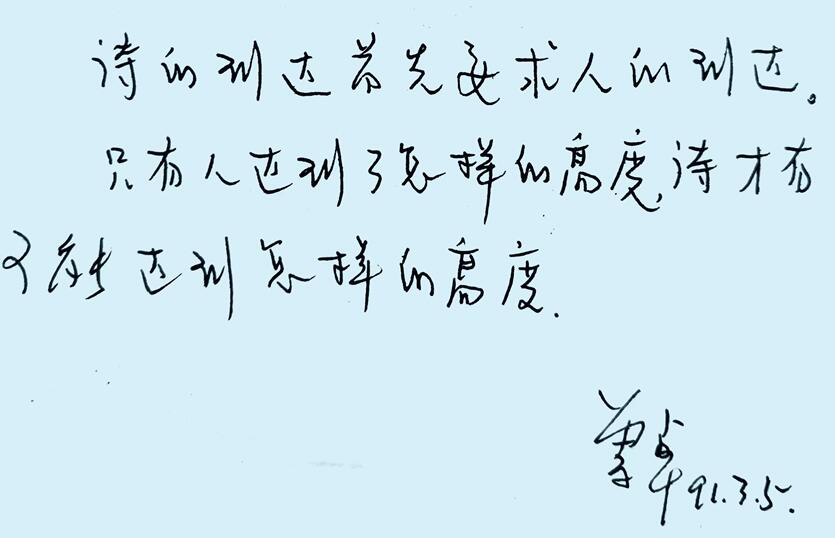 诗的到达首先要求人的到达。
只有人达到了怎样的高度,诗才有
可能达到怎样的高度.
91.3.5.